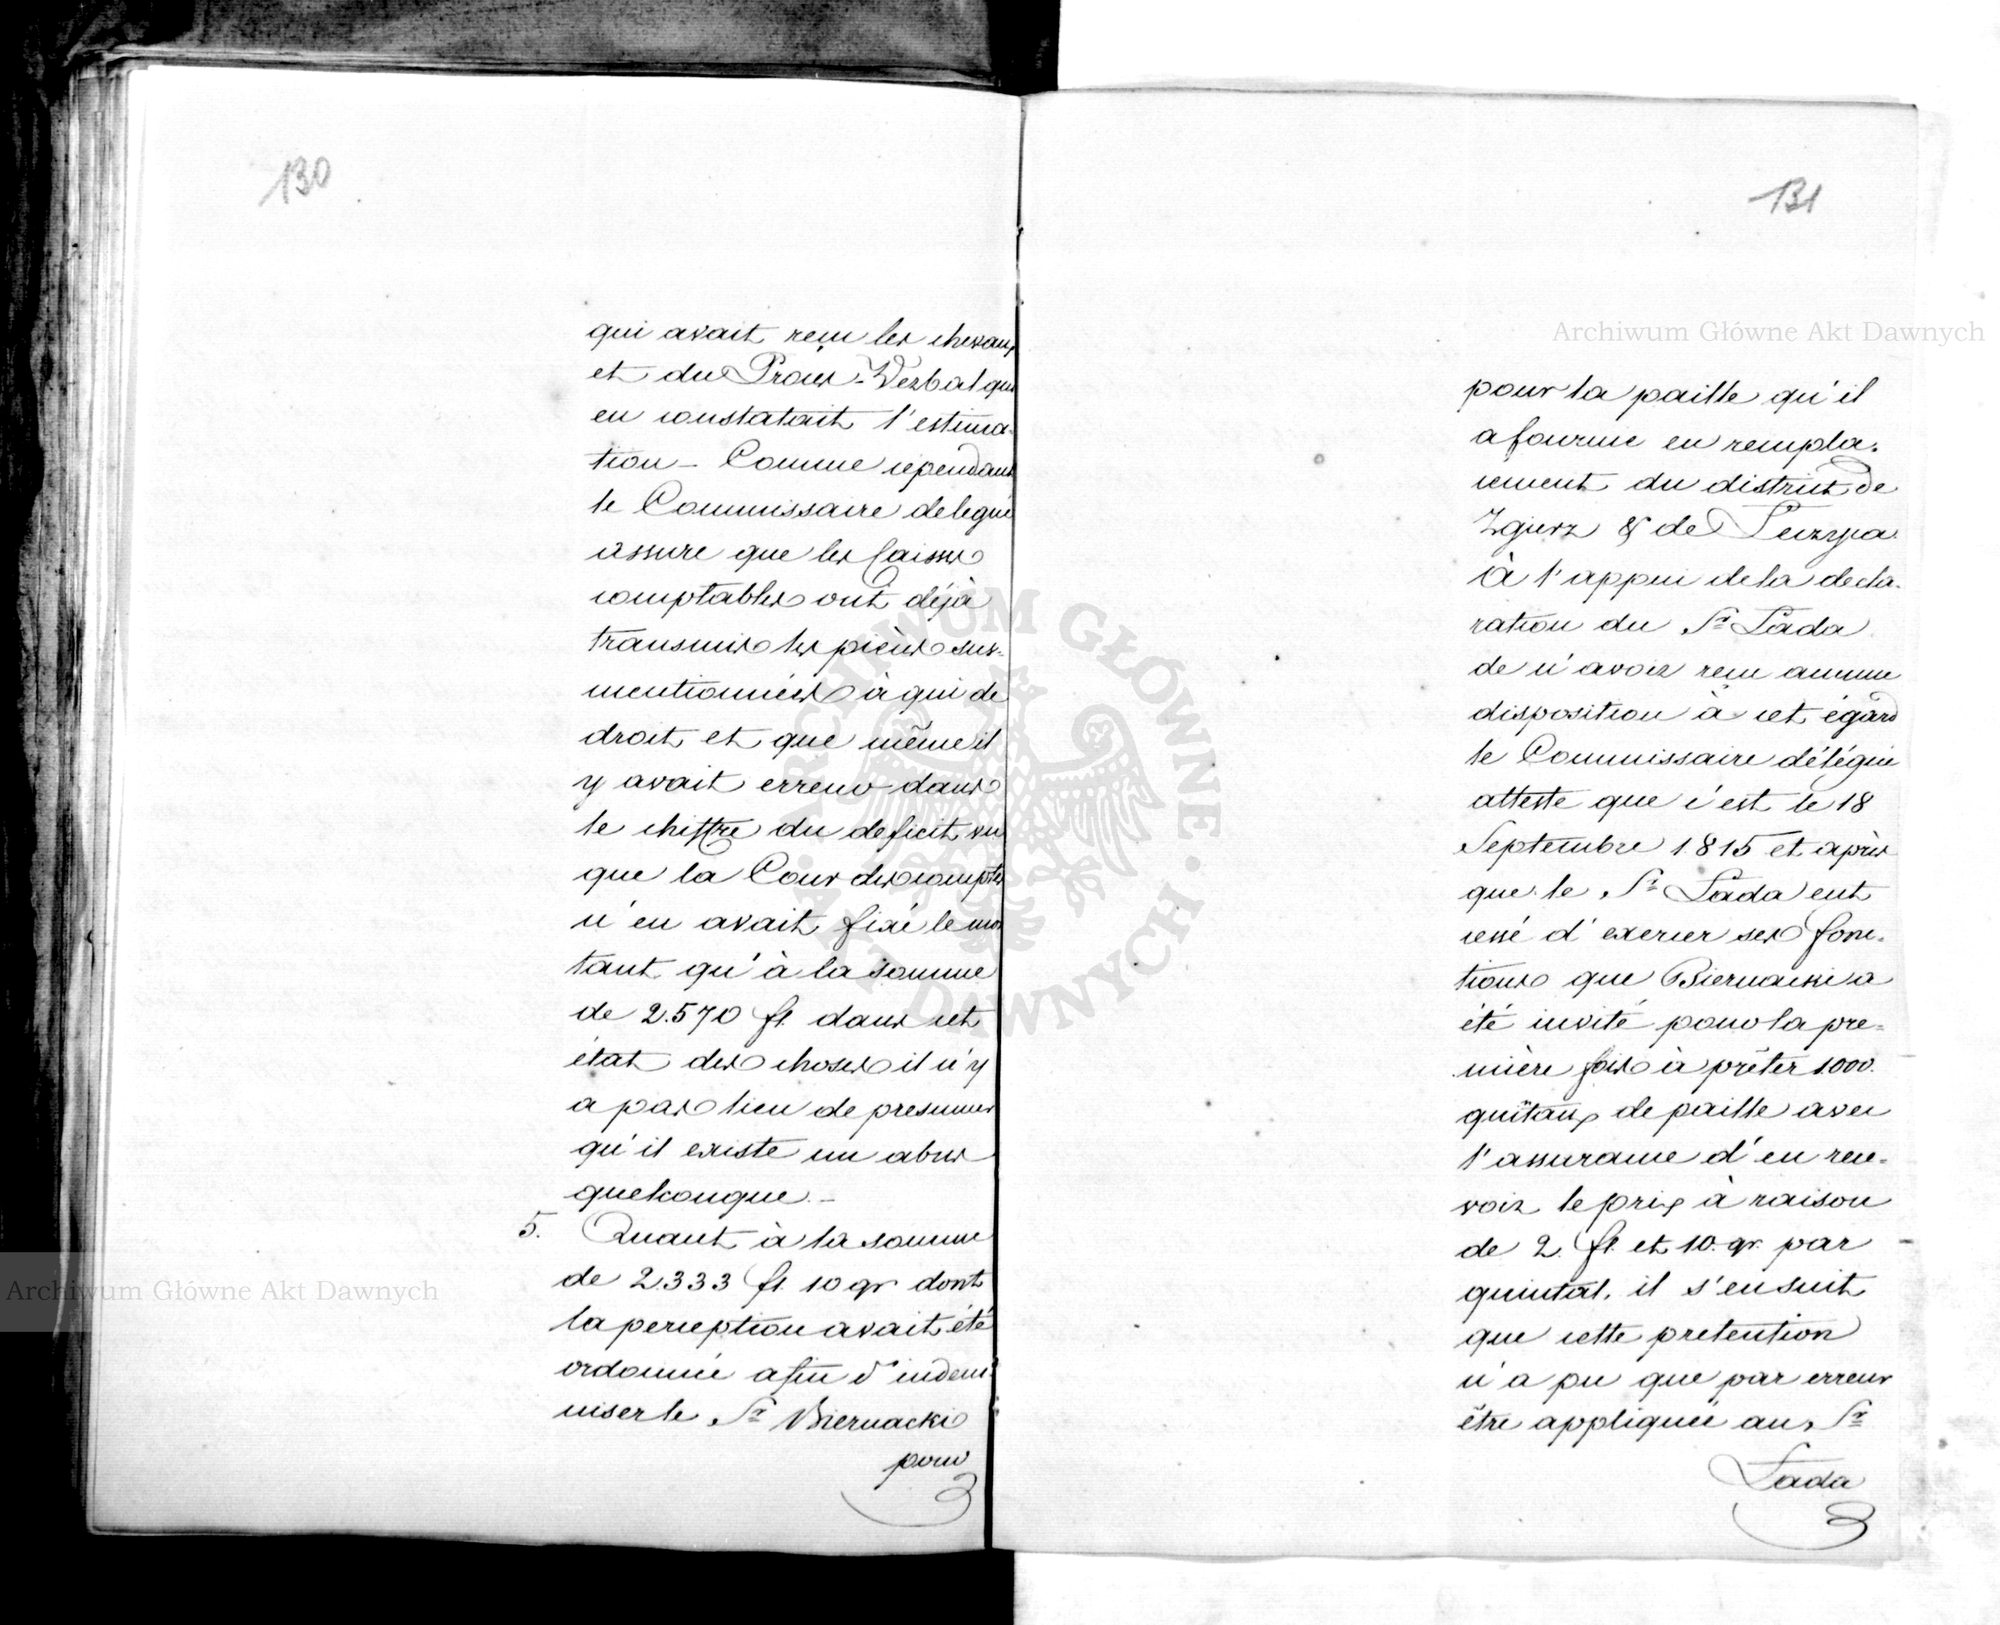 130
qui avait reçu les chevaux
et du Procès-Verbal qui
en constatait l'estima-
tion - Comme cependant
le Commissaire delegué
assure que les Caisses
comptables ont déjà
transmis les pièces sus-
mentionnées à qui de
droit et que même il
y avait erreur dans
le chiffre du deficit, vu
que la Cour des comptes
n'en avait fixé le mon
tant qu'à la somme
de 2.570 fl. dans cet
état des choses il n'y
a pas lieu de presumer
qu'il existe un abus
quelconque. -
5. Quant à la somme
de 2333 fl. 10 gr dont
la perception avait été
ordonnée afin d'indem-
niser le Sr Biernacki
pour
131
pour la paille qu'il
a fournie en rempla-
cement du district de
Zgierz & de
À l'appui de la decla-
ration du Sr Łada
de n'avoir reçu aucune
disposition à cet égard
le Commissaire délégué
atteste que c'est le 18
Septembre 1815 et après
que le Sr Łada eut
cessé d'exercer ses fonc-
tions que Biernacki a
été invité pour la pre-
mière fois à prêter 1000
quitaux de paille avec
l'assurance d'en rece-
voir le prix à raison
de 2. fl. et 10. gr. par
quintal, il s'en suit
que cette pretention
n'a pu que par erreur
être appliquée au Sr
Łada
Archiwum Główne Akt Dawnych
Archiwum Główne Akt Dawnych
ARCHIWUM GŁÓWNE AKT DAWNYCH